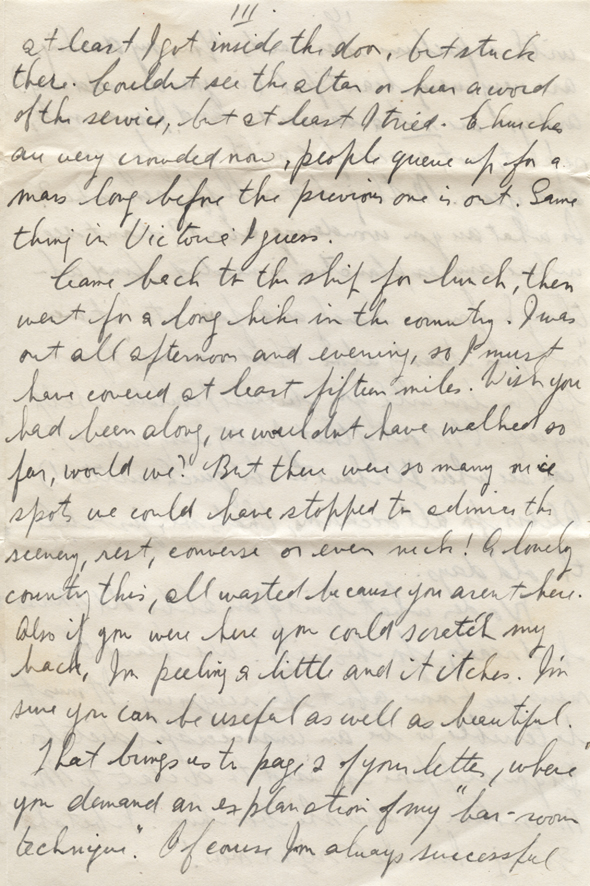 III.
at least I got inside the door, but stuck
there. Couldn't see the altar or hear a word
of the service, but at least I tried. Churches
are very crowded now, people queue up for a
mass long before the previous one is out. Same
thing in Victoria I guess.
Came back to the ship for lunch, then
went for a long hike in the country. I was
out all afternoon and evening, so I must
have covered at least fifteen miles. Wish you
had been along, we wouldn't have walked so
far, would we? But there were so many nice
spots we could have stopped to admire the
scenery, rest, converse or even neck! A lovely
country this, all wasted because you aren't here.
Also if you were here you could scratch my
back, I'm peeling a little and it itches. I'm
sure you can be useful as well as beautiful.
That brings us to page 2 of your letter, where
you demand an explanation of my "bar-room
technique". Of course I'm always successful